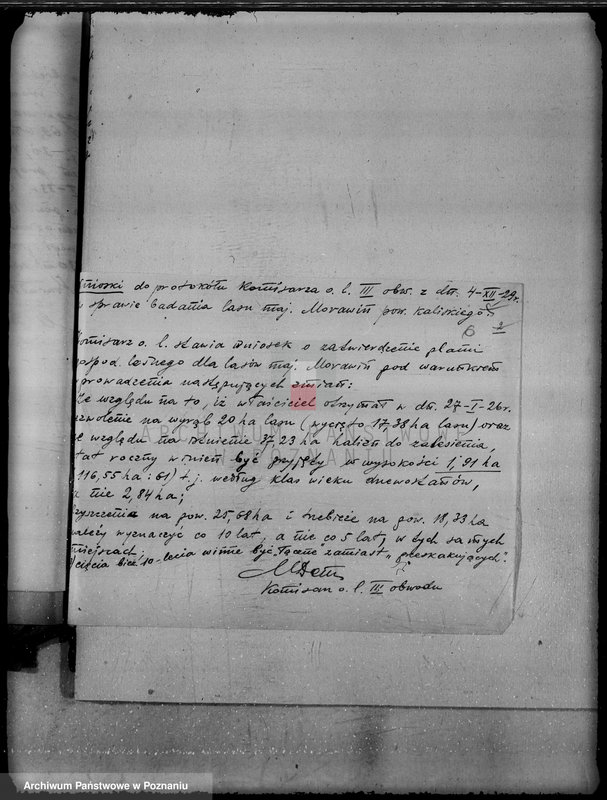 nioski do protokółu Komisarza o. l. III obw. z dn. 4-XII-29r.
sprawie badania lasu maj. Morawin pow. kaliskiego
omisarz o. l. stawia wniosek o zatwierdzenie planu
ospod. leśnego dla lasów maj. Morawin pod warunkiem
prowadzenia następujących zmian:
e względu na to, iż właściciel otrzymał w dn. 27-I-26r.
zwolenie na wyrąb 20 ha lasu (wycięto 17,38 ha lasu) oraz
e względu na istnienie 37,23 ha halizn do zalesienia,
tat roczny winien być przyjęty w wysokości 1,91 ha
116,55 ha : 61) t. j. według klas wieku drzewostanów,
a nie 2,84 ha;
zyszczenia na pow. 25,68 ha i trzebieże na pow. 18,33 ha
należy wyznaczyć co 10 lat, a nie co 5 lat, w tych samych
miejscach;
cięcia bież. 10-lecia winne być łączne zamiast "przeskakujących".
Komisarz o. l. III obwodu
Archiwum Państwowe w Poznaniu